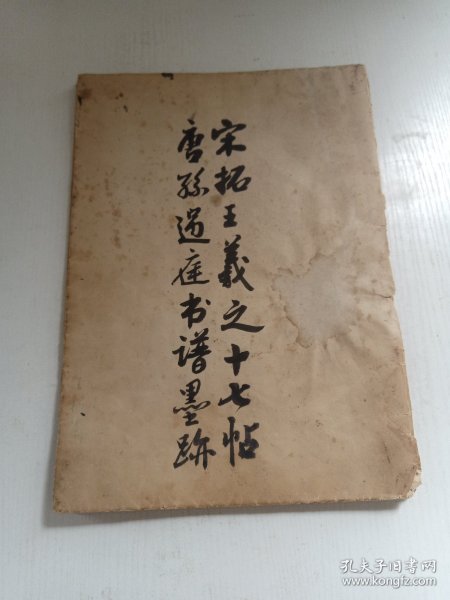 宋拓王羲之十七帖
唐孙过庭书谱墨跡
孔夫子旧书网
www.kongfz.com